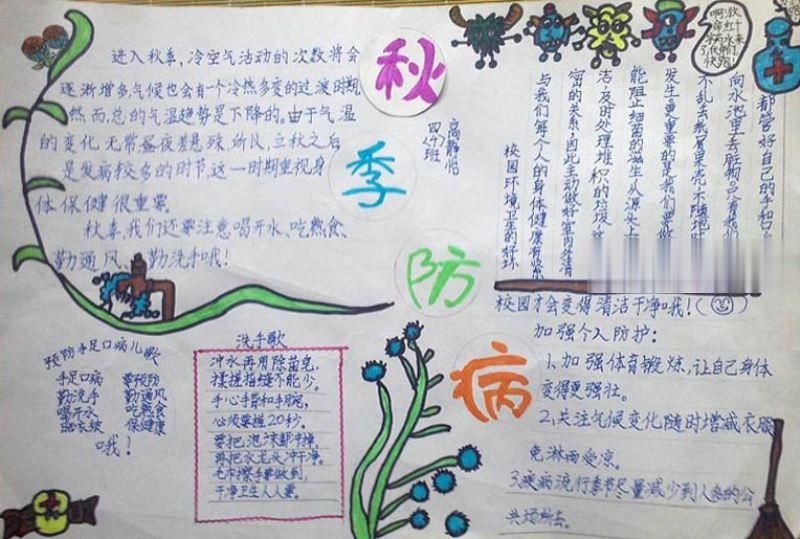 进入秋季，冷空气活动的次数将会
逐渐增多，气候也会有一个冷热多变的过渡时期
然而，总的气温趋势是下降的。由于气温
的变化无常昼夜悬殊，所以，立秋之后
是发病较多的时节，这一时期重视身
体保健很重要。
秋季，我们还要注意喝开水、吃熟食、
勤通风、勤洗手哦！
秋
季
防
病
四（4）班
预防手足口病儿歌
手足口病 要预防
勤洗手 勤通风
喝开水 吃熟食
晒衣被 保健康
哦！
洗手歌
冲水再用除菌皂，
揉搓指缝不能少。
手心手背和手腕，
必须要搓20秒。
要把泡沫都冲掉，
再把水龙头冲干净。
毛巾擦手要做到，
干净卫生人人要。
都管好自己的手和口
向水池里丢脏物只有我们
不乱丢纸屑果壳不随地
发生最重要的是我们要做
能阻止细菌的滋生从源头上
洁及时处理堆积的垃圾
密的关系因此主动做好室内外清
与我们每个人的身体健康有紧
校园环境卫生的好坏
校园才会变得清洁干净哦！
加强个人防护：
1、加强体育锻炼，让自己身体
变得更强壮。
2、关注气候变化随时增减衣服
免淋雨受凉。
3、疾病流行季节尽量减少到人多的公
共场所去。